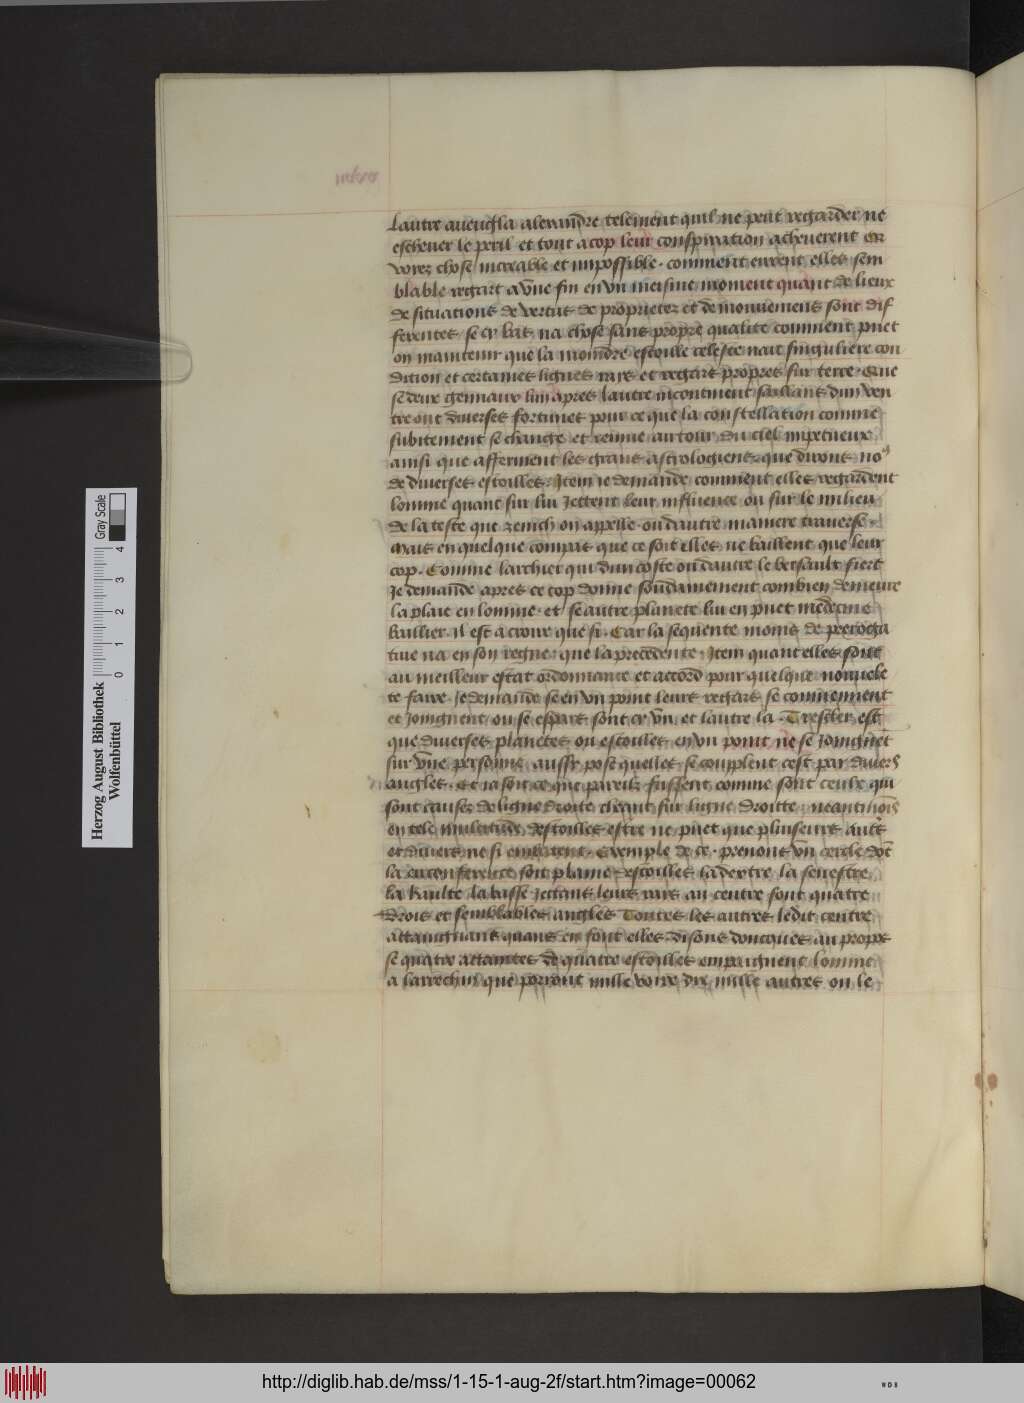 Lautre aveugla alexandre telement quil ne peut regarder ne
eschever le peril et tout a cop leur conspiration acheverent Et
voiez chose increable et impossible. comment eurent elles sem
blable regart a vne fin en vn meisme moment quant de lieux
de situations de vertus de proprietez et de mouuemens sont dif
ferentes. se cy bas na chose sans propre qualite comment puet
on maintenir que la moindre estoille celeste nait singuliere con
dition et certaines lignes rays et regars propres sur terre. Que
se deux gemaux lun apres lautre incontinent saillans dun ven
tre ont diuerses fortunes pour ce que la constellation comme
subitement se change et tourne au tour du ciel impetueux
ainsi que afferment les grans astrologiens. que dirons no9
de diuerses estoilles. Item ie demande comment elles regardent
lomme quant sur lui Jettent leur influence ou sur le milieu
de la teste que zenich on appelle. ou dautre maniere trauerse.
Mais en quelque compas que ce soit elles ne baillent que leur
cop. Comme larchier qui dun coste ou dautre le bersault fiert
Je demande apres ce cop donne soudainement combien demeure
la plaie en lomme. et se autre planete lui en puet medecine
baillier. il est a croire que si. Car la sequente moins de preroga
tiue na en son regne. que la precedente. Item quant elles sont
au meilleur estat ordonnance et accord pour quelque nouuele
te faire. Je demande se en vn point leurs regars se conuiennent
et Joingnent. ou se espars sont cy vn et lautre la. Trescler est
que diuerses planetes ou estoilles en vn point ne se Joingnet
sur vne personne. aussy pose quelles se coupplent cest par diuers
angles. Et ia soit ce que pareilz fussent comme sont ceulx qui
sont causez de ligne droite cheant sur ligne droitte. neantmois
en tele multitude destoilles estre ne puet que pluiseurs autres
et diuers ne si embatent. Exemple de ce. prenons vn cercle dot
la circonference soit plaine destoilles la dextre la senestre
la haulte la basse Jettans leurs rays au centre font quatre
drois et semblables angles Toutes les autres ledit centre
attaingnans quans en font elles. disons doncques au propos
se quatre attaintes de quatre estoilles empaignent lomme
a larrechin que porront mille voire dix mille autres ou le
Herzog August Bibliothek
Wolfenbüttel
0 1 2 3 4
Gray Scale
http://diglib.hab.de/mss/1-15-1-aug-2f/start.htm?image=00062
WDB